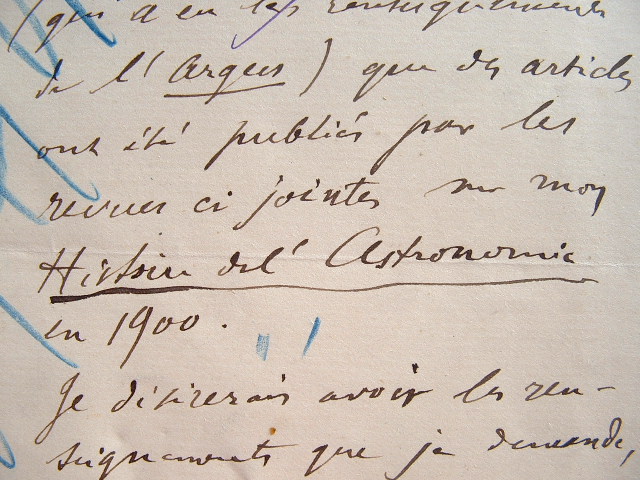 (qui a eu les renseignements
de l'Argus) que des articles
ont été publiés par les
revues ci jointes sur mon
Histoire de l'Astronomie
en 1900.
Je désirerais avoir les ren-
seignements que je demande,